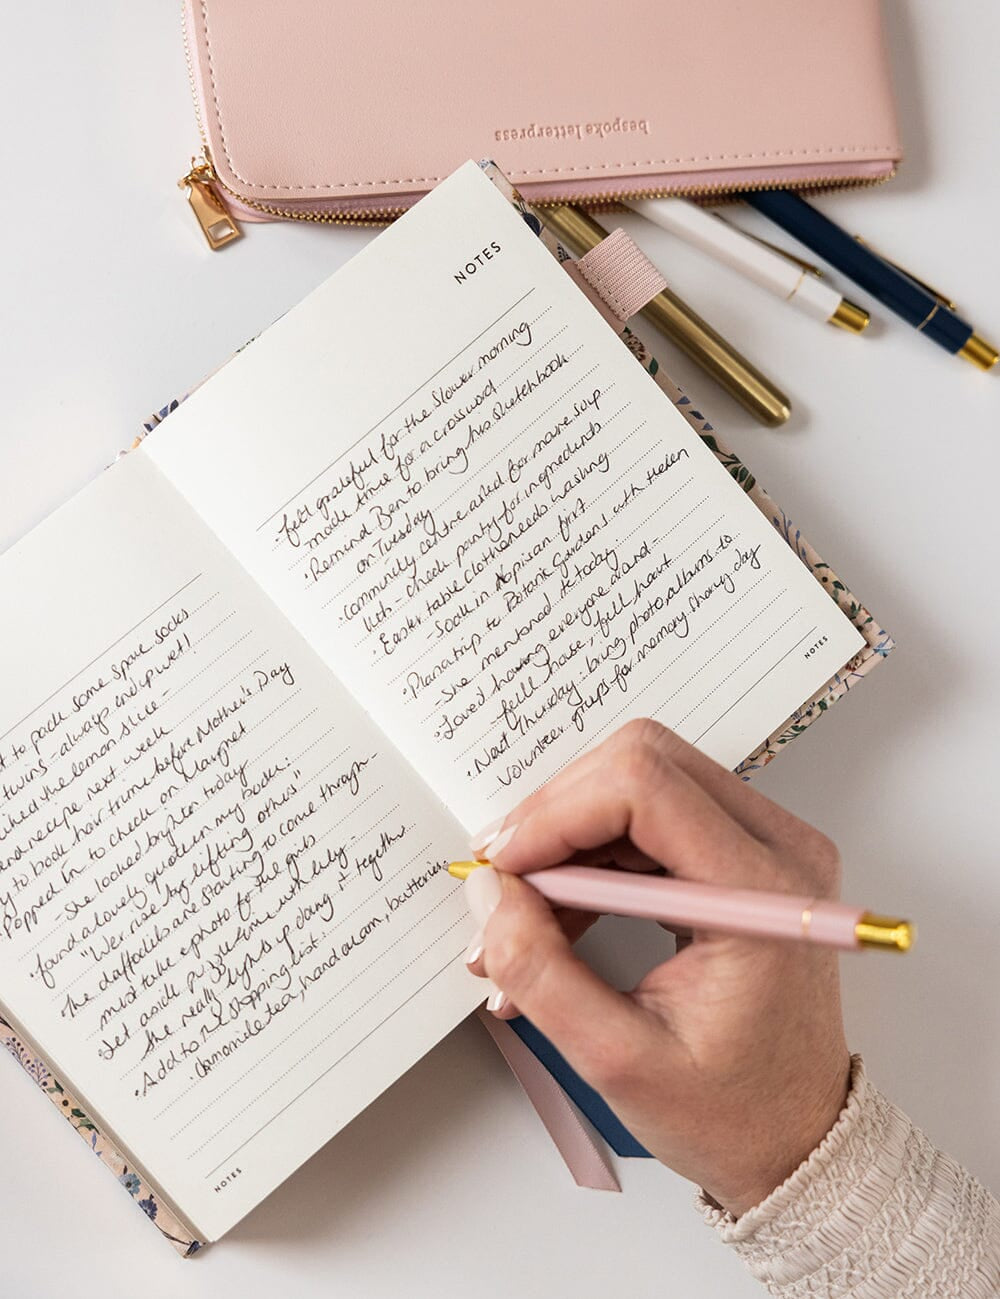 bespoke letterpress
t to pack some spare socks
twins - always end up wet!
liked the lemon slice -
end recipe next week
y to book hair trim before Mother's Day
Popped in to check on Margret
- She looked brighter today
found a lovely quote in my book:
"We rise by lifting others"
The daffodils are starting to come through -
must take a photo for the girls
Set aside puzzle time with Lily -
She really lights up doing it together
Add to shopping list:
Camomile tea, hand cream, batteries
NOTES
NOTES
felt grateful for the slower morning
made time for a crossword
Remind Ben to bring his sketchbook
on Tuesday
Community centre asked for more soup
- check pantry for ingredients
Easter table cloth needs washing
- Soak in Napisan first
Plan a trip to Botanic Gardens with Helen
- She mentioned it today.
Loved having everyone around -
- full house, full heart
Next Thursday: bring photo albums to
Volunteer group for memory sharing day
NOTES